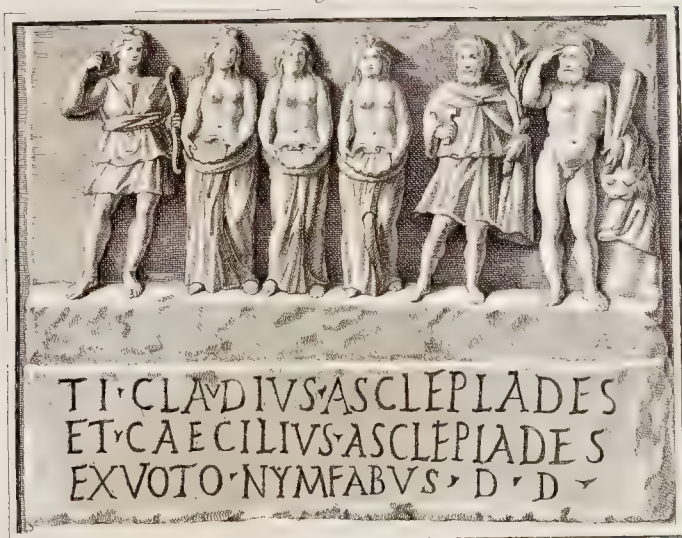 TI·CLAVDIVS·ASCLEPIADES
ET·CAECILIVS·ASCLEPIADES
EX VOTO·NYMFABVS·D·D